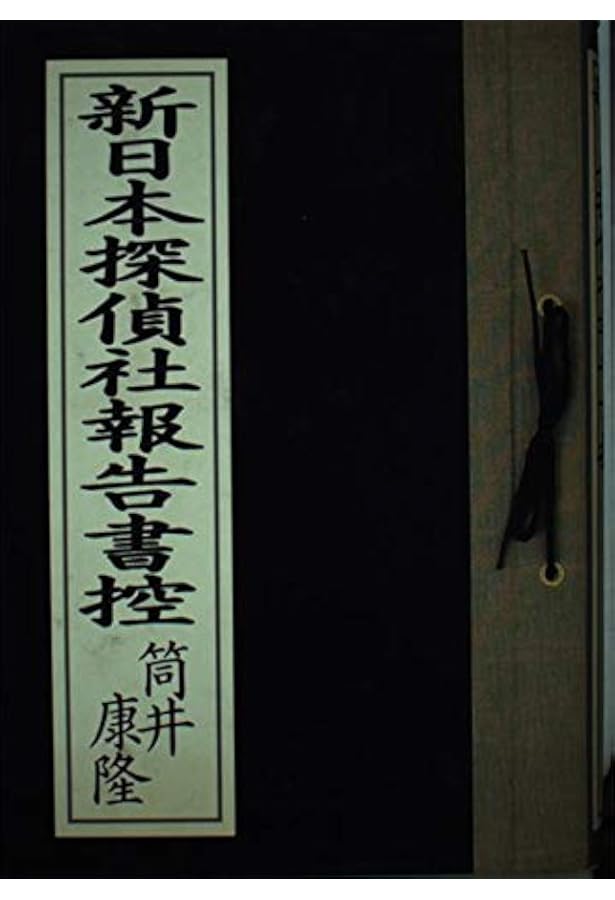 新日本探偵社報告書控
筒井
康隆